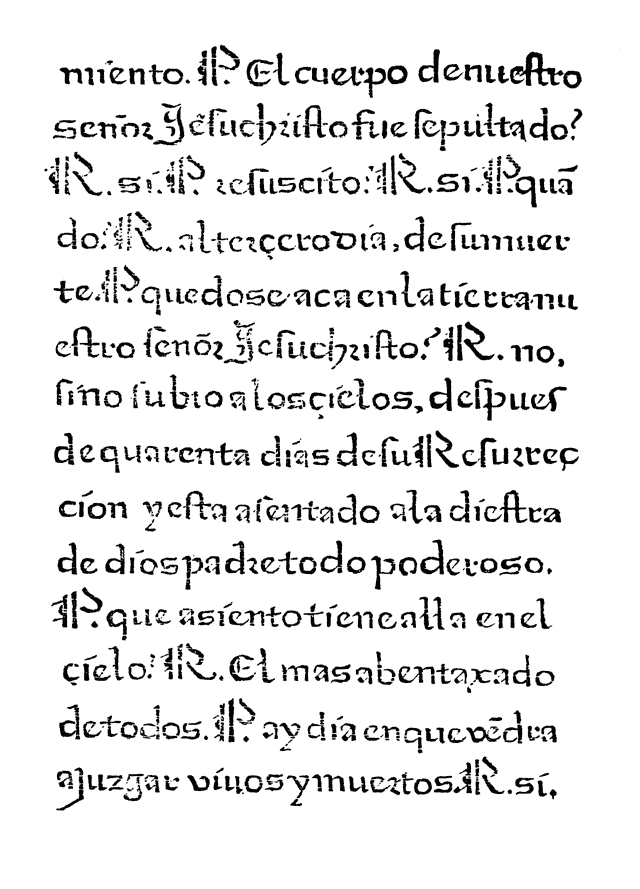 miento. P. El cuerpo denueſtro
señor Jeſuchriſto fue ſepultado?
R. si. P. reſuscito? R. si. P. quā
do? R. al terçero dia, deſumuer
te. P. quedose aca enlatierranu
eſtro ſeñor Jeſuchriſto? R. no,
ſino ſubio aloscielos, deſpueſ
dequarenta dias deſuReſurreç
cion y eſta aſentado ala dieſtra
de diospadretodo poderoso.
P. que asientotienealla enel
çielo? R. El masabentaxado
detodos. P. ay dia enquevēdra
ajuzgar viuosymuertos. R. si.